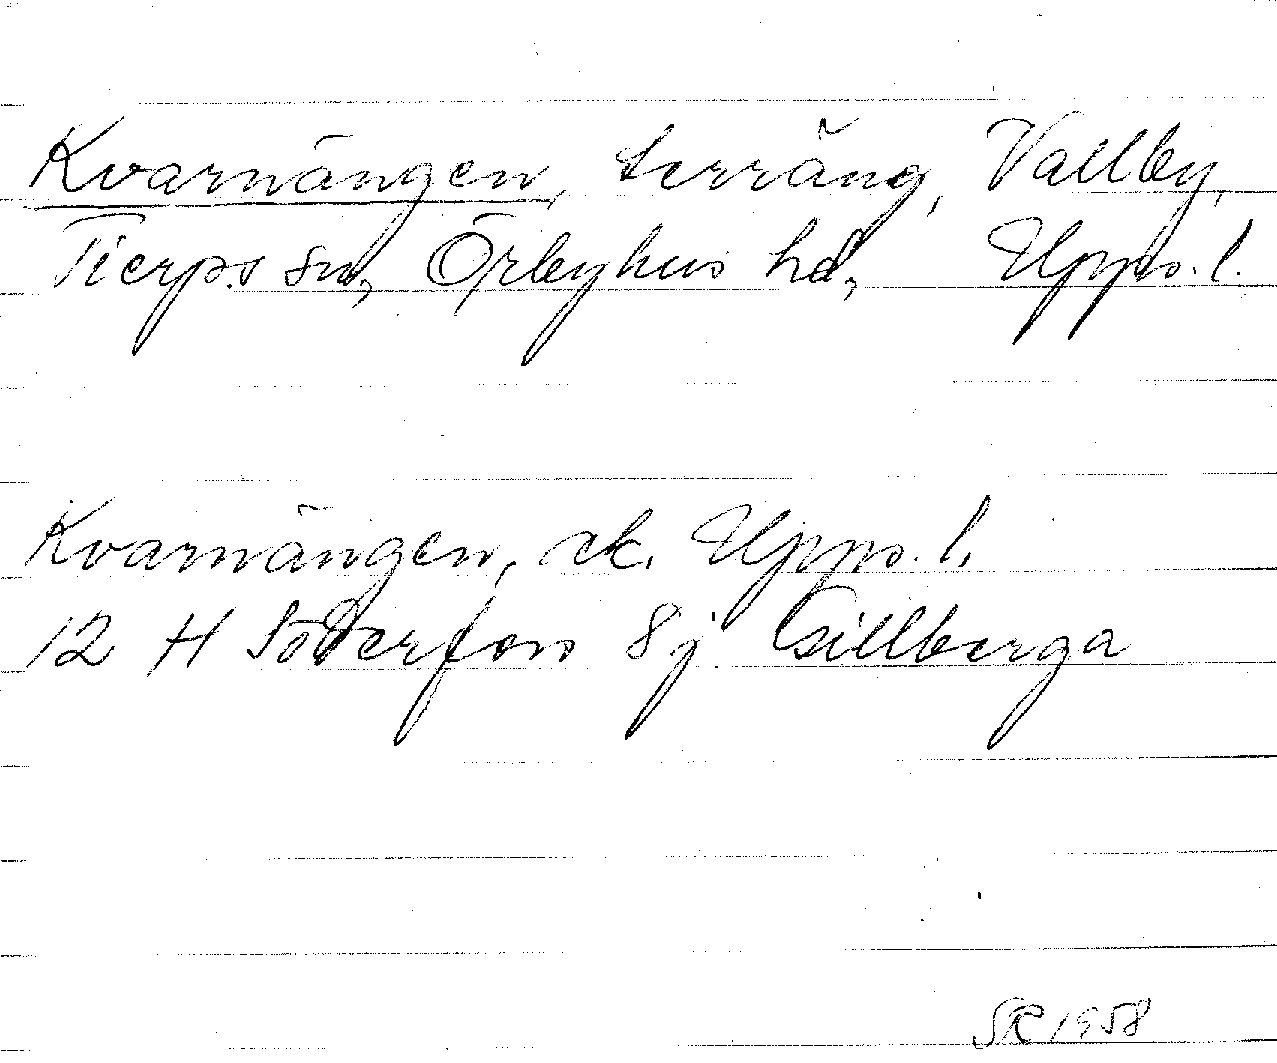 Kvarnängen, terräng, Vallby,
Tierps sn, Örbyhus hd, Upps. l.
Kvarnängen, ek. Upps. l.
12 H Söderfors 8j Gillberga
SR 1958